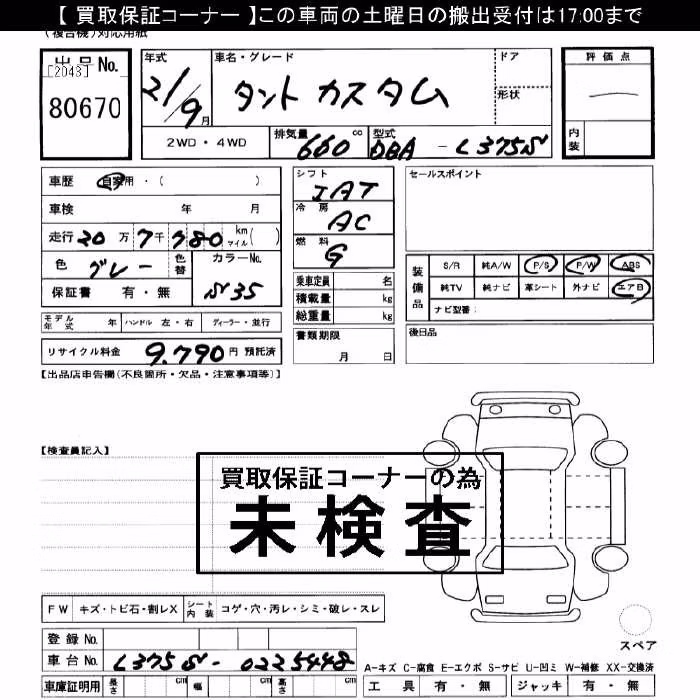 【 買取保証コーナー 】この車両の土曜日の搬出受付は17:00まで
(複合機)対応用紙
出品No. [2043]
80670
年式 21/9月
車名・グレード タント カスタム
ドア
形状
評価点
内装
2WD・4WD
排気量 660 cc
型式 DBA - L375S
車歴 自家用・( )
車検 年 月
走行 20万7千780 km マイル( )
色 グレー 色替
カラーNo. S35
保証書 有・無
シフト IAT
冷房 AC
燃料 G
乗車定員 名
積載量 kg
総重量 kg
セールスポイント
装備品
S/R 純A/W P/S P/W ABS
純TV 純ナビ 革シート 外ナビ エアB
ナビ型番:
モデル年式 年 ハンドル 左・右 ディーラー・並行
リサイクル料金 9,790円 預託済
書類期限 月 日
後日品
【出品店申告欄(不良箇所・欠品・注意事項等)】
【検査員記入】
買取保証コーナーの為
未検査
FW キズ・トビ石・割レX シート内装 コゲ・穴・汚レ・シミ・破レ・スレ
スペア
登録No.
車台No. L375S-0225448
A-キズ C-腐食 E-エクボ S-サビ U-凹ミ W-補修 XX-交換済
車庫証明用 長さ cm 幅 cm 高さ cm
工具 有・無 ジャッキ 有・無